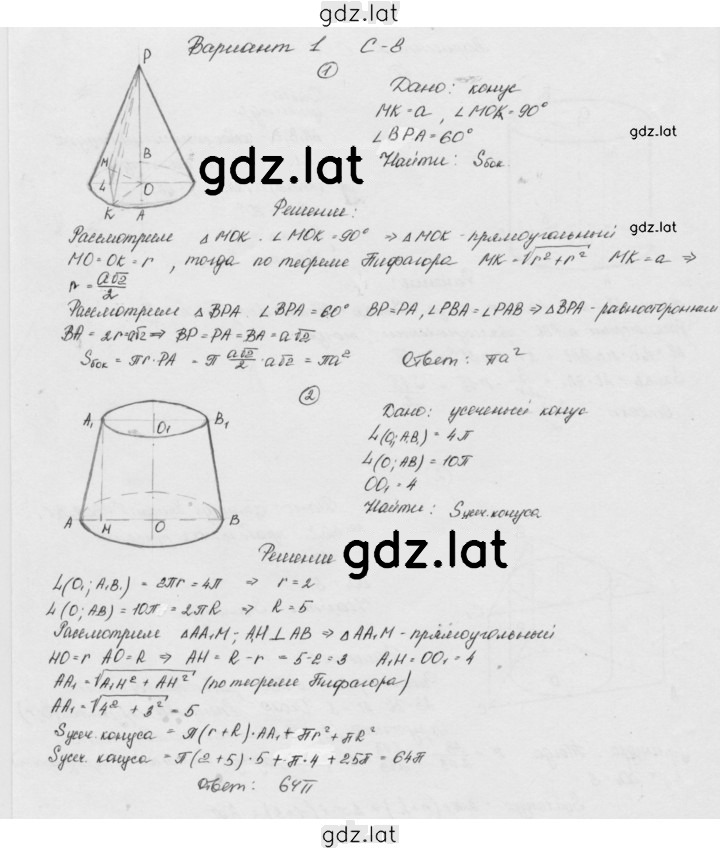 gdz.lat
Вариант 1 С-8
1
Дано: конус
MK=a, ∠MOK=90°
∠BPA=60°
Найти: Sбок.
gdz.lat
gdz.lat
P
M
B
4
O
K
A
Решение:
Рассмотрим △MOK. ∠MOK=90° ⇒ △MOK - прямоугольный
MO=OK=r, тогда по теореме Пифагора MK=√r²+r² MK=a ⇒
r=a√2/2
Рассмотрим △BPA ∠BPA=60° BP=PA, ∠PBA=∠PAB ⇒ △BPA - равносторонний
BA=2r=a√2 ⇒ BP=PA=BA=a√2
Sбок=πr·PA = π a√2/2 · a√2 = πa² Ответ: πa²
2
Дано: усеченный конус
L(O₁;A₁B₁)=4π
L(O;AB)=10π
OO₁=4
Найти: Sусеч.конуса
A₁
O₁
B₁
A
M
O
B
gdz.lat
Решение
L(O₁;A₁B₁)=2πr=4π ⇒ r=2
L(O;AB)=10π=2πR ⇒ R=5
Рассмотрим △AA₁M; AH⊥AB ⇒ △AA₁M - прямоугольный
HO=r AO=R ⇒ AH=R-r=5-2=3 A₁H=OO₁=4
AA₁=√A₁H²+AH² (по теореме Пифагора)
AA₁=√4²+3²=5
Sусеч.конуса=π(r+R)·AA₁+πr²+πR²
Sусеч.конуса=π(2+5)·5+π·4+25π=64π
Ответ: 64π
gdz.lat